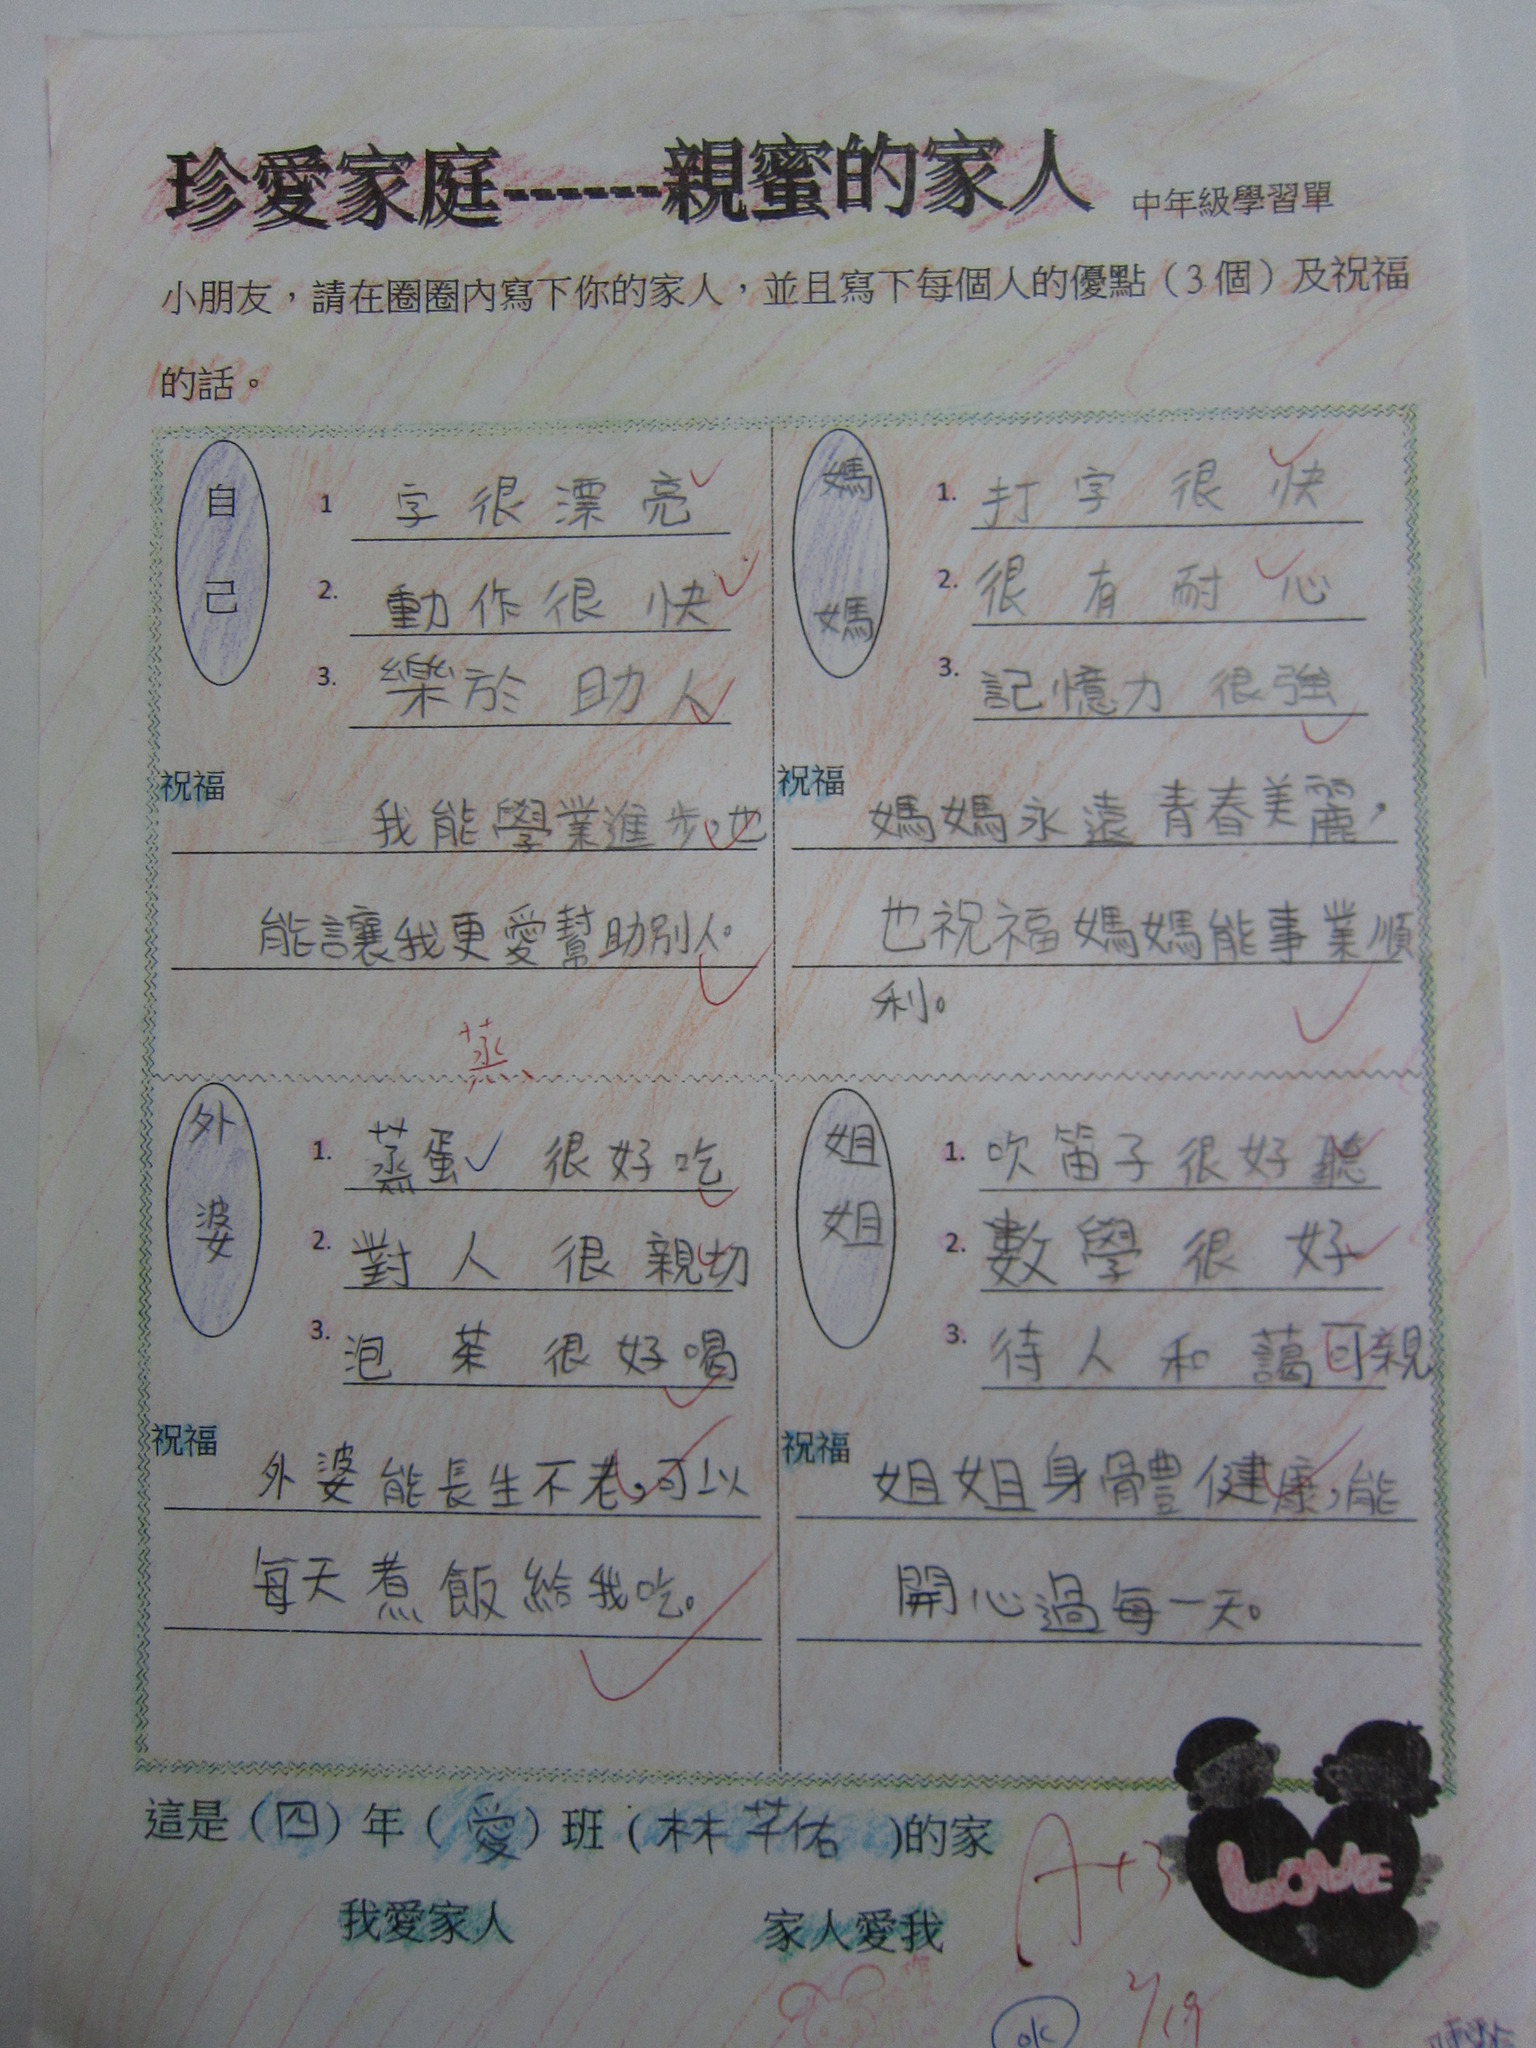 珍愛家庭------親蜜的家人 中年級學習單
小朋友，請在圈圈內寫下你的家人，並且寫下每個人的優點（3 個）及祝福
的話。
自己
1 字很漂亮
2. 動作很快
3. 樂於助人
祝福
我能學業進步，也
能讓我更愛幫助別人。
媽媽
1. 打字很快
2. 很有耐心
3. 記憶力很強
祝福
媽媽永遠青春美麗，
也祝福媽媽能事業順
利。
蒸
外婆
1. 蒸蛋很好吃
2. 對人很親切
3. 泡茶很好喝
祝福
外婆能長生不老，可以
每天煮飯給我吃。
姐姐
1. 吹笛子很好聽
2. 數學很好
3. 待人和藹可親
祝福
姐姐身體健康，能
開心過每一天。
這是（四）年（愛）班（林芊佑 )的家
我愛家人 家人愛我
LOVE
A+3
ok
2/19